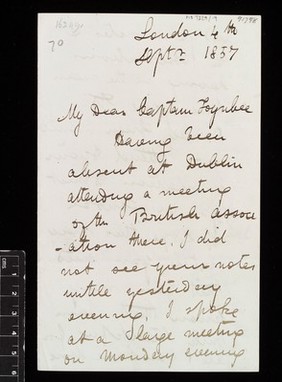 70
London 4th
Septr 1857
My Dear Captain Toynbee
Having been
absent at Dublin
attending a meeting
of the British Assoc
-ation there, I did
not see your notes
until yesterday
evening. I spoke
at a large meeting
on Monday evening